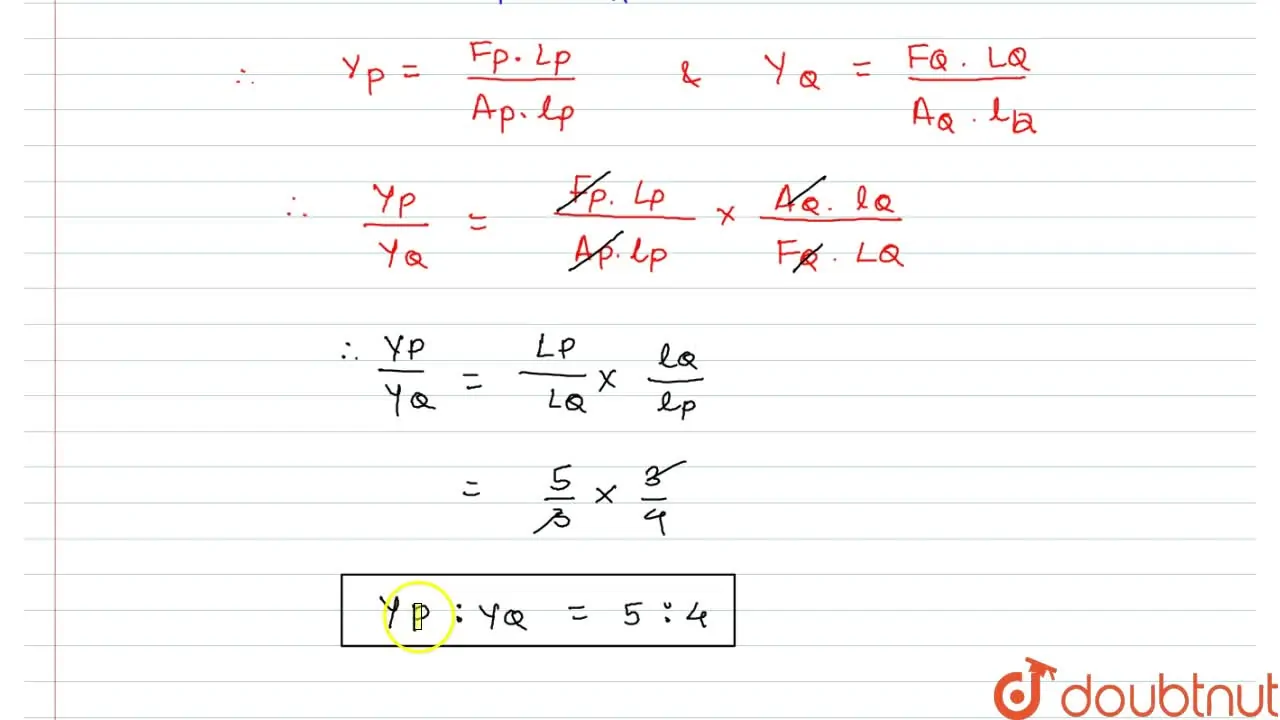 ∴ YP = FP · LP / AP · lP & YQ = FQ · LQ / AQ · lQ
∴ YP / YQ = FP · LP / AP · lP × AQ · lQ / FQ · LQ
∴ YP / YQ = LP / LQ × lQ / lP
= 5/3 × 3/4
YP : YQ = 5 : 4
doubtnut